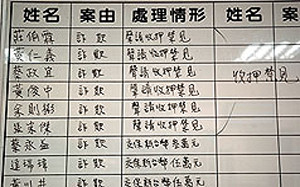 姓名 案由 處理情形 姓名 案
莊伯霖 詐欺 聲請收押禁見
黃仁義 詐欺 聲請收押禁見
蔡政宜 詐欺 聲請收押禁見 收押禁見
黃俊中 詐欺 聲請收押禁見
余則彬 詐欺 聲請收押禁見
詐欺 聲請收押禁見
蔡永益 詐欺 交保新台幣 萬元
詐欺 交保新台幣伍萬元
詐欺 交保新台幣伍萬元